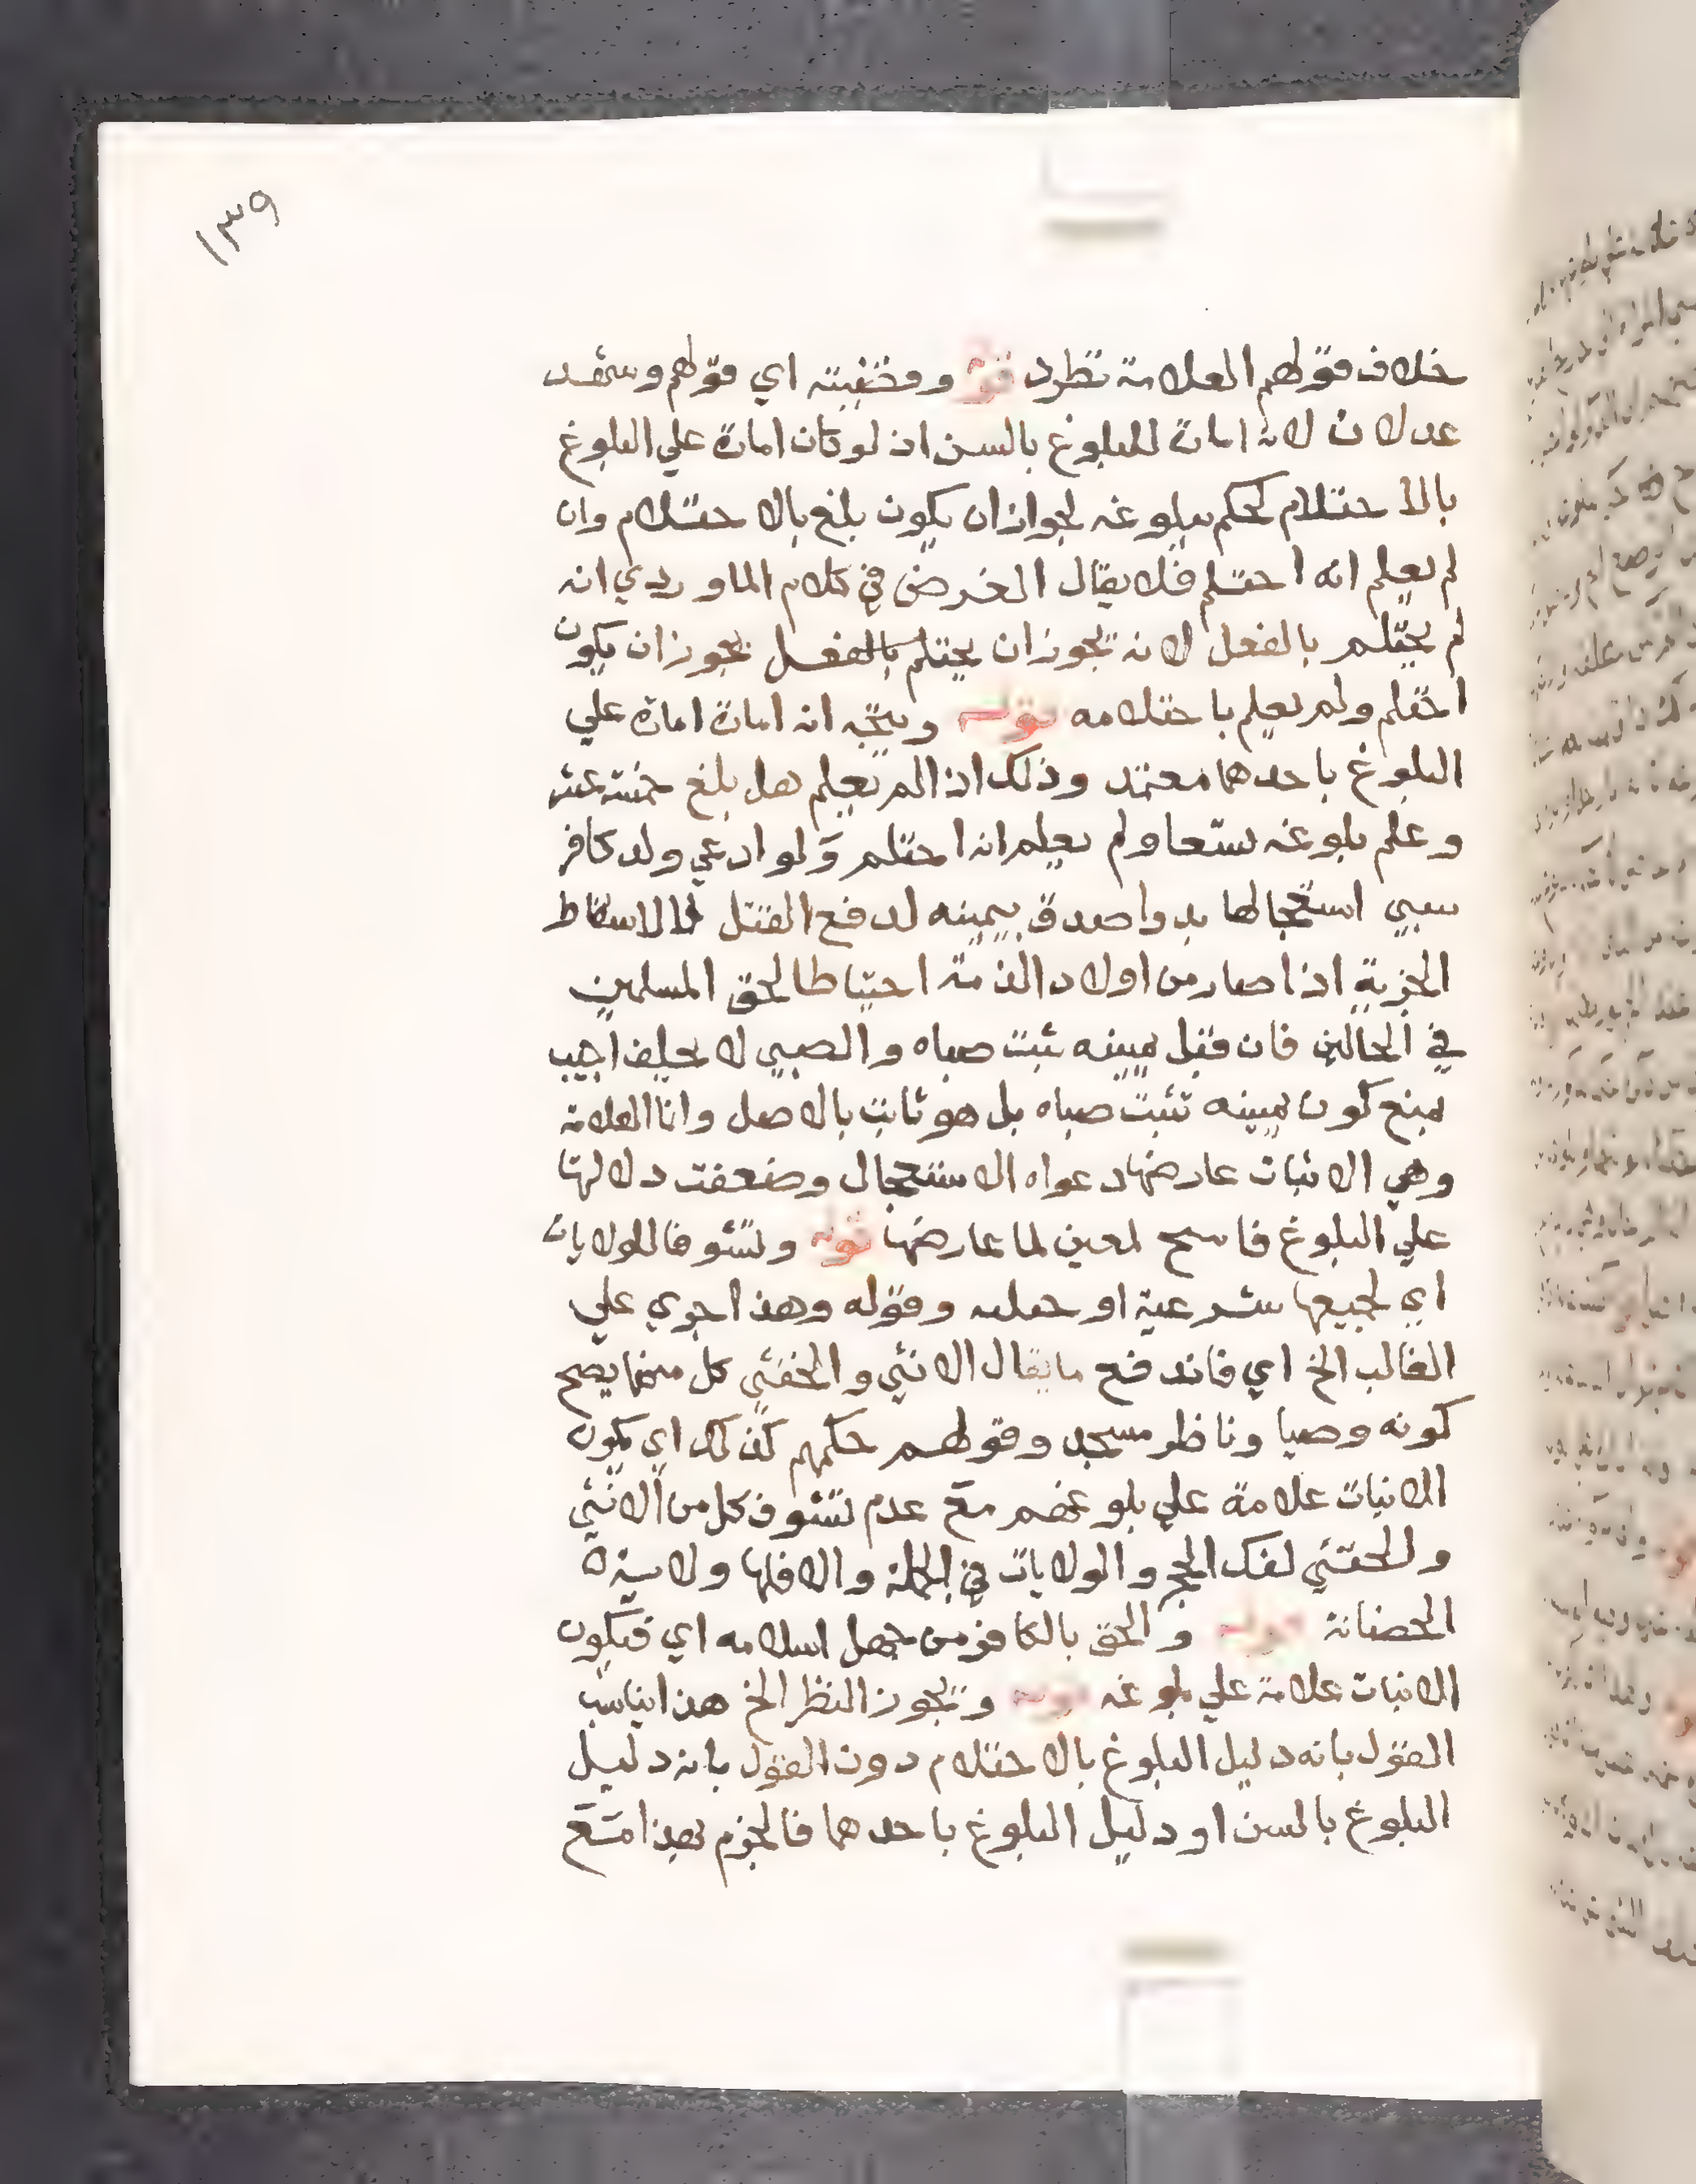 ١٣٩
خلاف قولهم العلامة تطرد قوله وقضيته اي قولهم وشهد
عدلان لانه امارة للبلوغ بالسن اذ لو كان امارة علي البلوغ
بالاحتلام لحكم ببلوغه لجواز ان يكون بلغ بالاحتلام وان
لم يعلم انه احتلم فلا يقال الغرض في كلام الماوردي انه
لم يحتلم بالفعل لانه يجوز ان يحتلم بالفعل يجوز ان يكون
احتلم ولم يعلم باحتلامه قوله ويتجه انه امارة امارة علي
البلوغ باحدهما معتمد وذلك اذا لم يعلم هل بلغ خمسة عشر
وعلم بلوغه تسعا ولم يعلم انه احتلم ولو ادعي ولد كافر
سبي استعجالها بدوا صدق بيمينه لدفع القتل لا لاسقاط
الجزية اذا صار من اولاد الذمة احتياطا لحق المسلمين
في الحالين فان قيل يمينه تثبت صباه والصبي لا يحلف اجيب
بمنع كون يمينه تثبت صباه بل هو ثابت بالاصل وانا العلامة
وهي الانبات عارضها دعواه الاستعجال وضعفت دلالتها
علي البلوغ فا لمعين لما عارضها قوله وتشوفا للولايات
اي لجميعها شرعية او وقوله وهذا جري علي
الغالب الخ اي فاندفع ما يقال الانثي والخنثي كل منهما يصح
كونه وصيا وناظر مسجد وقولهم حكمهم كذلك اي يكون
الانبات علامة علي بلوغهم مع عدم تشوف كل من الانثي
والخنثي لفك الحجر والولايات في الجملة والا فلها ولاية
الحضانة قوله والحق بالكافر من جهل اسلامه اي فيكون
الانبات علامة علي بلوغه قوله ويجوز النظر الخ هذا يناسب
القول بانه دليل البلوغ بالاحتلام دون القول بانه دليل
البلوغ بالسن او دليل البلوغ باحدهما فالجزم بهذا مع